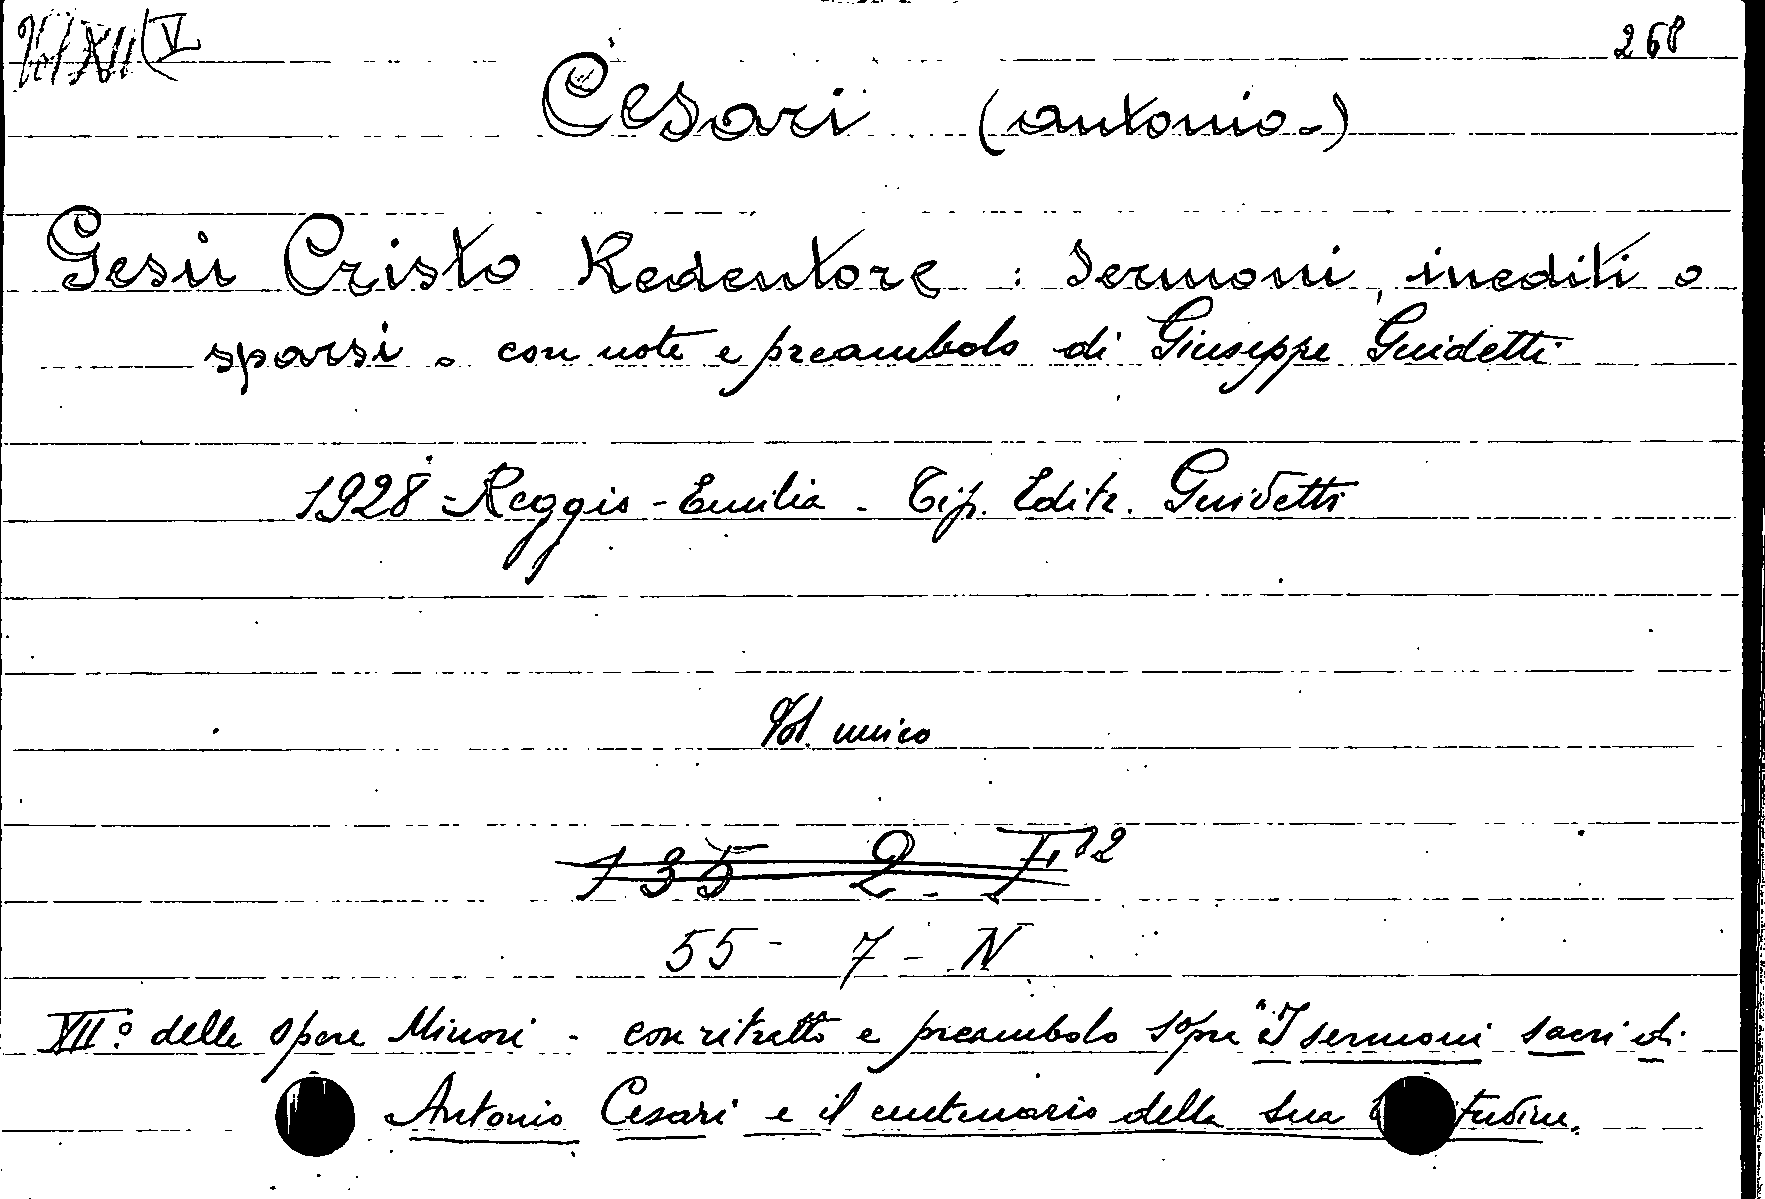 Vol XII (V
268
Cesari (Antonio-)
Gesù Cristo Redentore : Sermoni, inediti o
sparsi - con note e preambolo di Giuseppe Guidetti
1928 - Reggio - Emilia - Tip. Editr. Guidetti
Vol. unico
135 2 - F 12
55 - 7 - N
XII° delle Opere Minori - con ritratto e preambolo sopra "I sermoni sacri di
Antonio Cesari e il centenario della sua